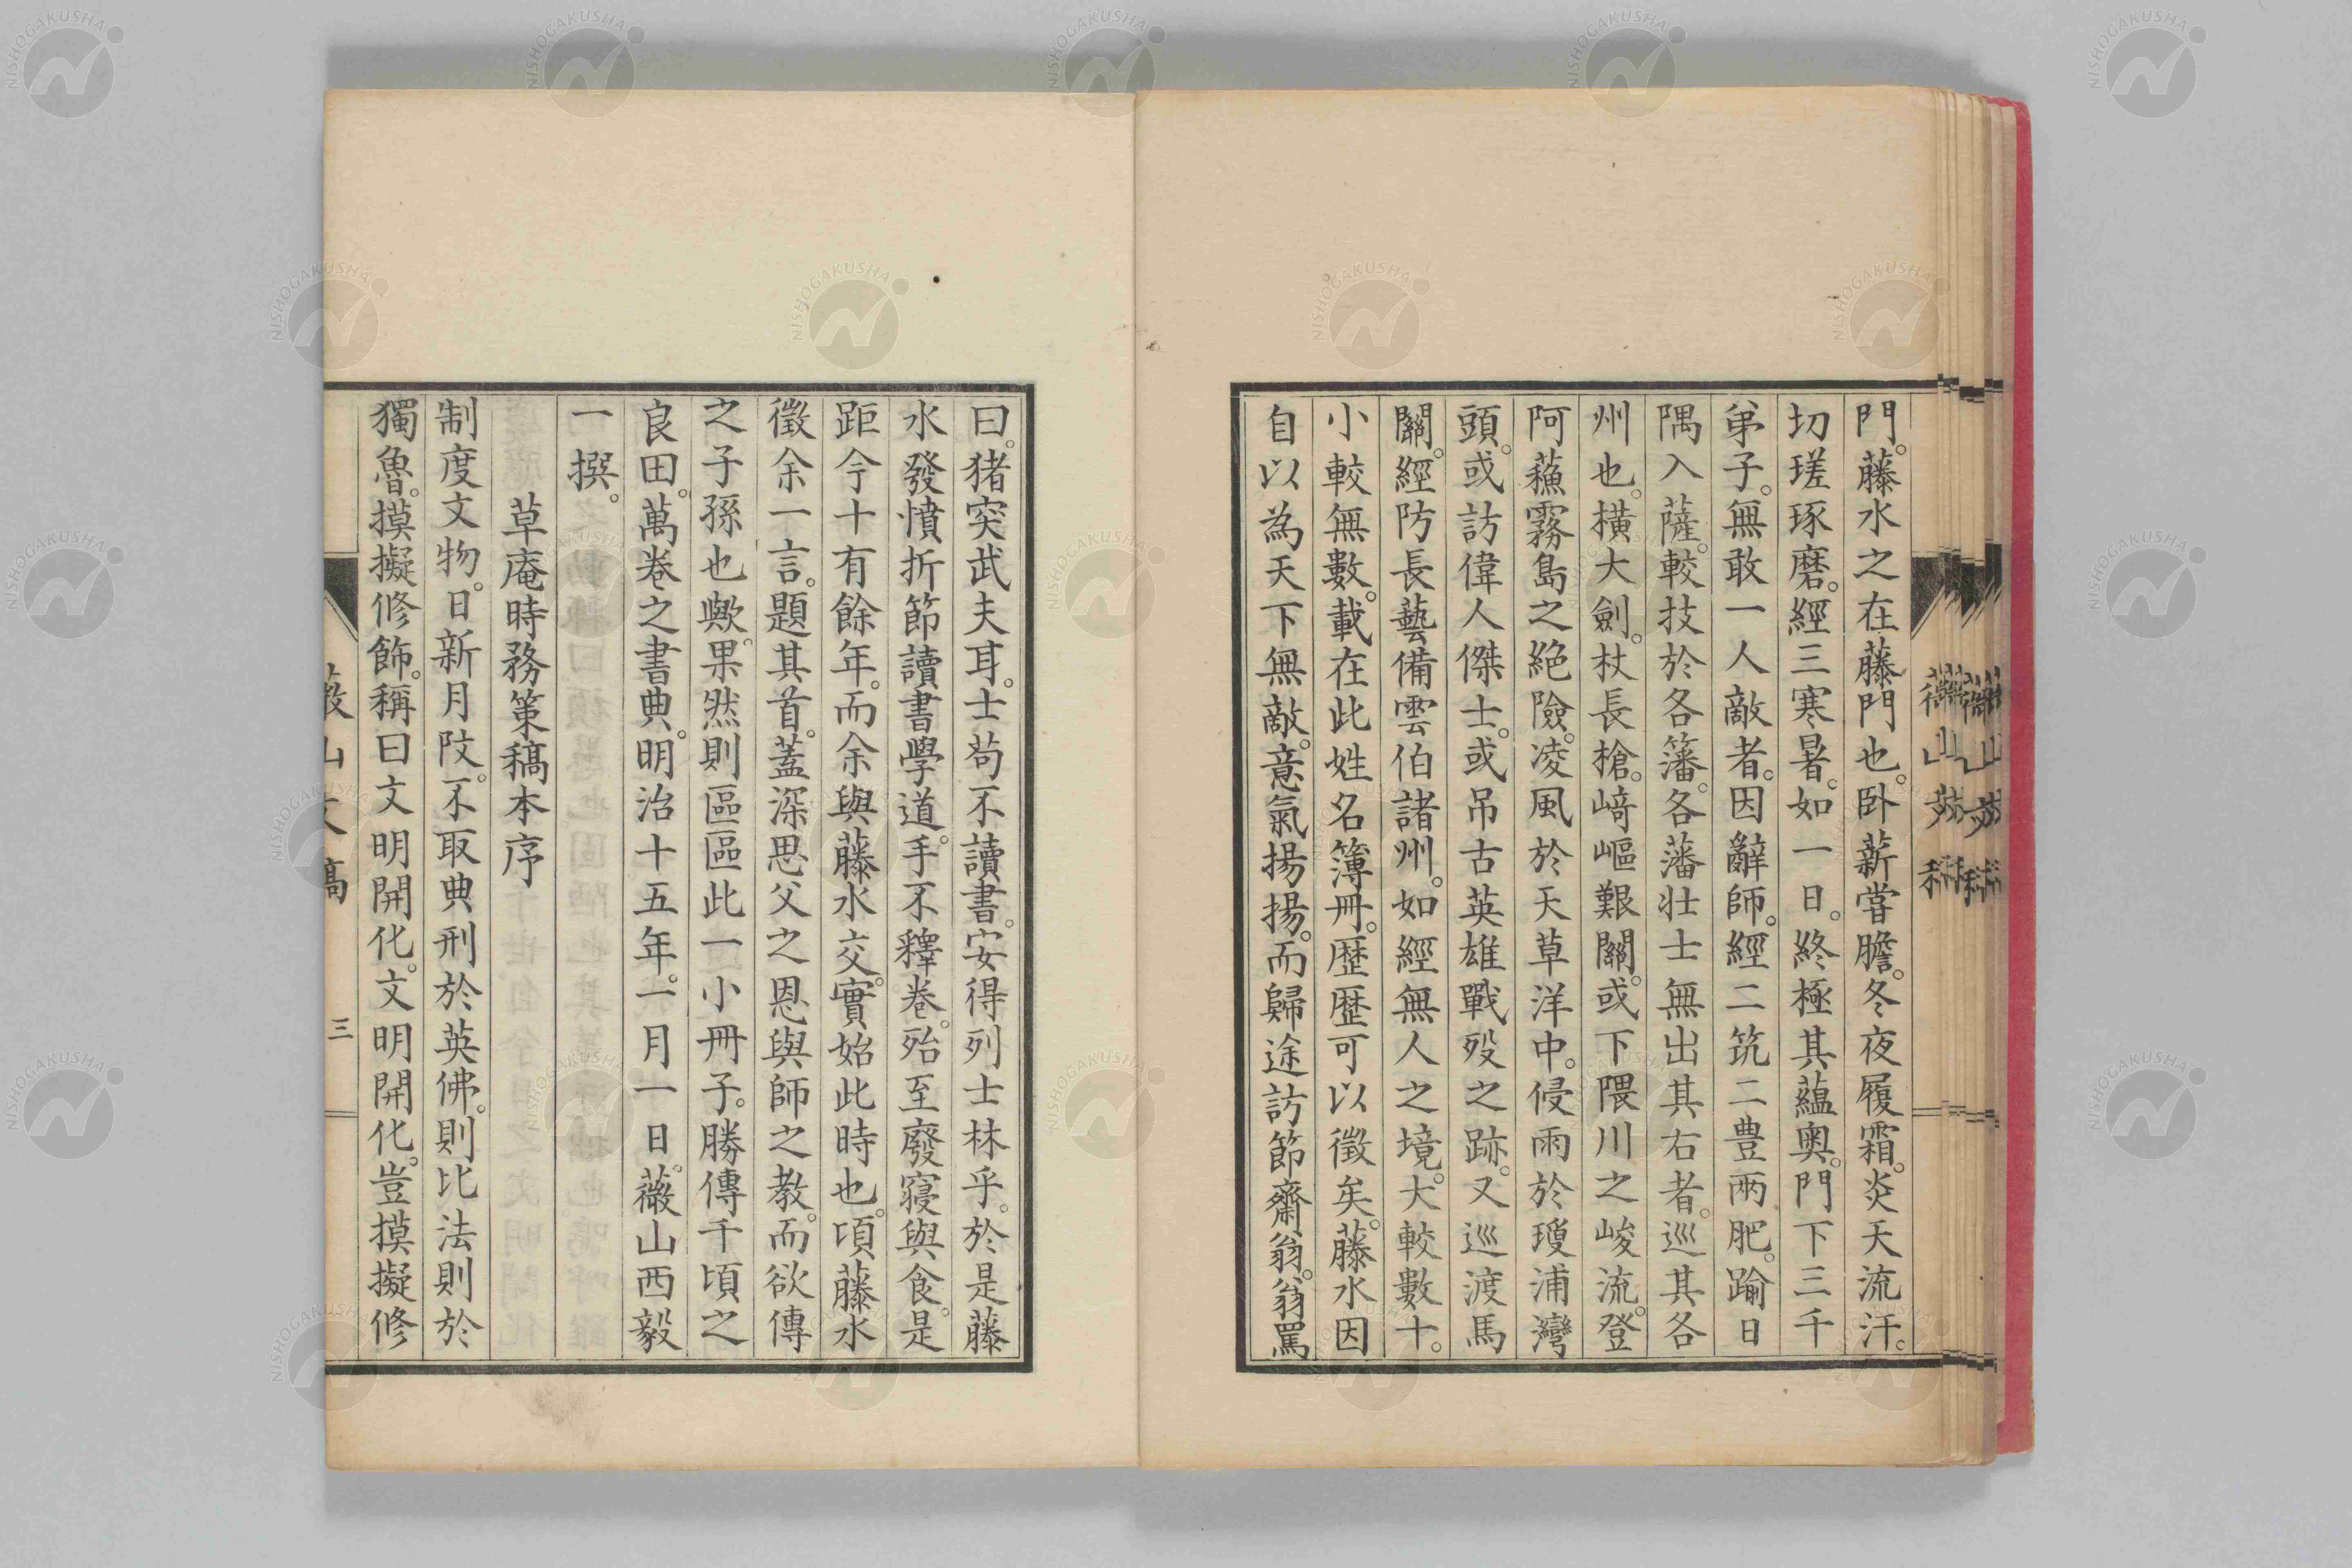 門。藤水之在藤門也。臥薪嘗膽。冬夜履霜。炎天流汗。
切瑳琢磨。經三寒暑。如一日。終極其蘊奧。門下三千
弟子。無敢一人敵者。因辭師。經二筑二豊兩肥。踰日
隅入薩。較技於各籓。各藩壮士無出其右者。巡其各
州也。橫大劍。杖長槍。崎嶇艱關。或下隈川之峻流。登
阿蘓霧島之絶險。凌風於天草洋中。侵雨於瓊浦灣
頭。或訪偉人傑士。或吊古英雄戰歿之跡。又巡渡馬
關。經防長藝備雲伯諸州。如經無人之境。大較數十。
小較無數。載在此姓名簿冊。歷歷可以徵矣。藤水因
自以為天下無敵。意氣揚揚。而歸途訪節齋翁。翁罵
曰。猪突武夫耳。士苟不讀書。安得列士林乎。於是藤
水發憤折節讀書學道。手不釋卷。殆至廢寢與食。是
距今十有餘年。而余與藤水交。實始此時也。頃藤水
徵余一言。題其首。蓋深思父之恩與師之教。而欲傳
之子孫也歟。果然則區區此一小冊子。勝傳千頃之
良田。萬卷之書典。明治十五年。一月一日。薇山西毅
一撰。
草庵時務策稿本序
制度文物。日新月阪。不取典刑於英佛。則比法則於
獨魯。摸擬修飾。稱曰文明開化。文明開化。豈摸擬修
薇山文稿 三
NISHOGAKUSHA